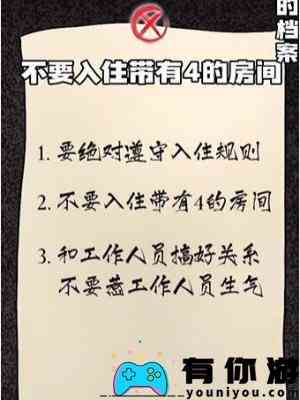 的档案
不要入住带有4的房间
1. 要绝对遵守入住规则
2. 不要入住带有4的房间
3. 和工作人员搞好关系
不要惹工作人员生气
有你游
youniyou.com